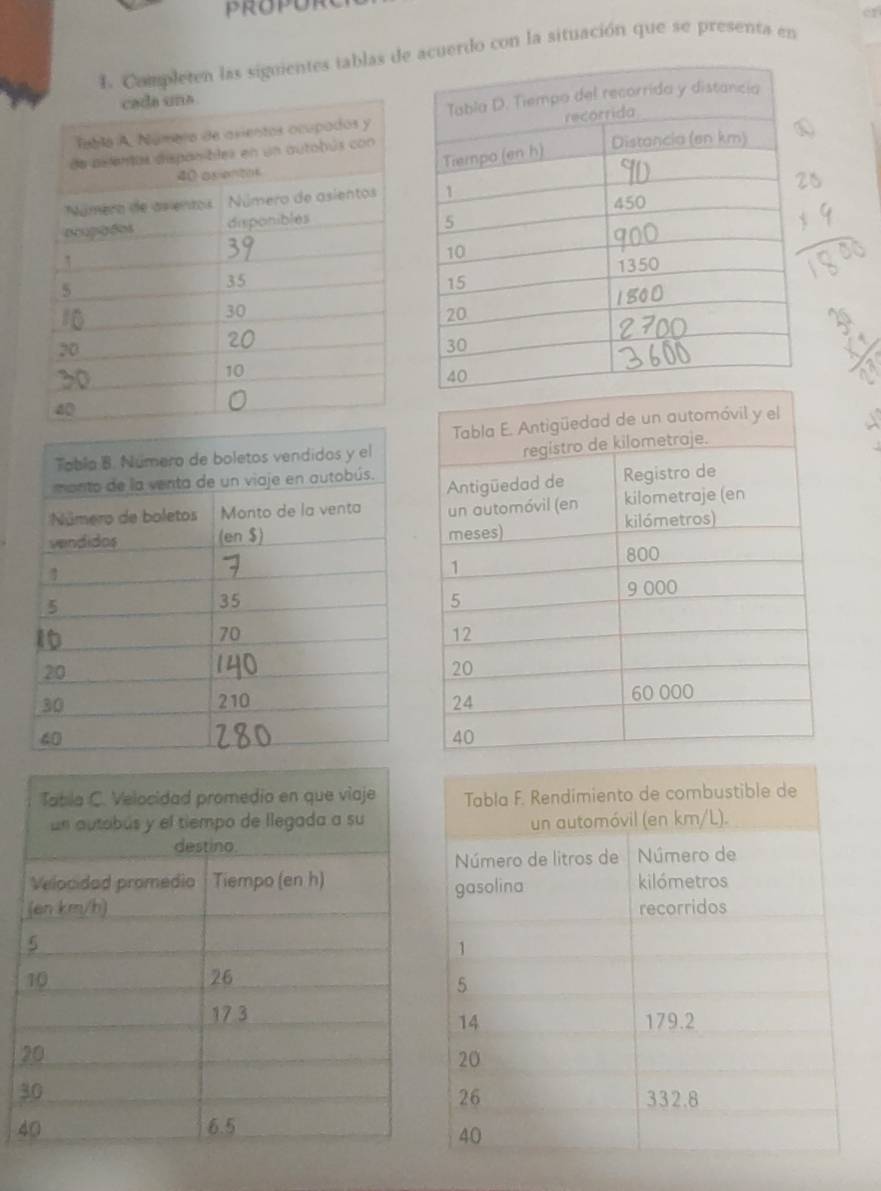 1. Completen las siguientes tablas de acuerdo con la situación que se presenta en
cada una.
Tabla A. Número de asientos ocupados y
de asientos disponibles en un autobús con
40 asientos.
Número de asientos ocupados | Número de asientos disponibles
1 | 39
5 | 35
10 | 30
20 | 20
30 | 10
40 | 0
Tabla B. Número de boletos vendidos y el
monto de la venta de un viaje en autobús.
Número de boletos vendidos | Monto de la venta (en $)
1 | 7
5 | 35
10 | 70
20 | 140
30 | 210
40 | 280
Tabla C. Velocidad promedio en que viaje
un autobús y el tiempo de llegada a su
destino.
Velocidad promedio (en km/h) | Tiempo (en h)
5
10 | 26
17.3
20
30
40 | 6.5
Tabla D. Tiempo del recorrido y distancia
recorrida
Tiempo (en h) | Distancia (en km)
1 | 90
5 | 450
10 | 900
15 | 1350
20 | 1800
30 | 2700
40 | 3600
20
x 9
1800
Tabla E. Antigüedad de un automóvil y el
registro de kilometraje.
Antigüedad de un automóvil (en meses) | Registro de kilometraje (en kilómetros)
1 | 800
5 | 9 000
12
20
24 | 60 000
40
Tabla F. Rendimiento de combustible de
un automóvil (en km/L).
Número de litros de gasolina | Número de kilómetros recorridos
1
5
14 | 179.2
20
26 | 332.8
40